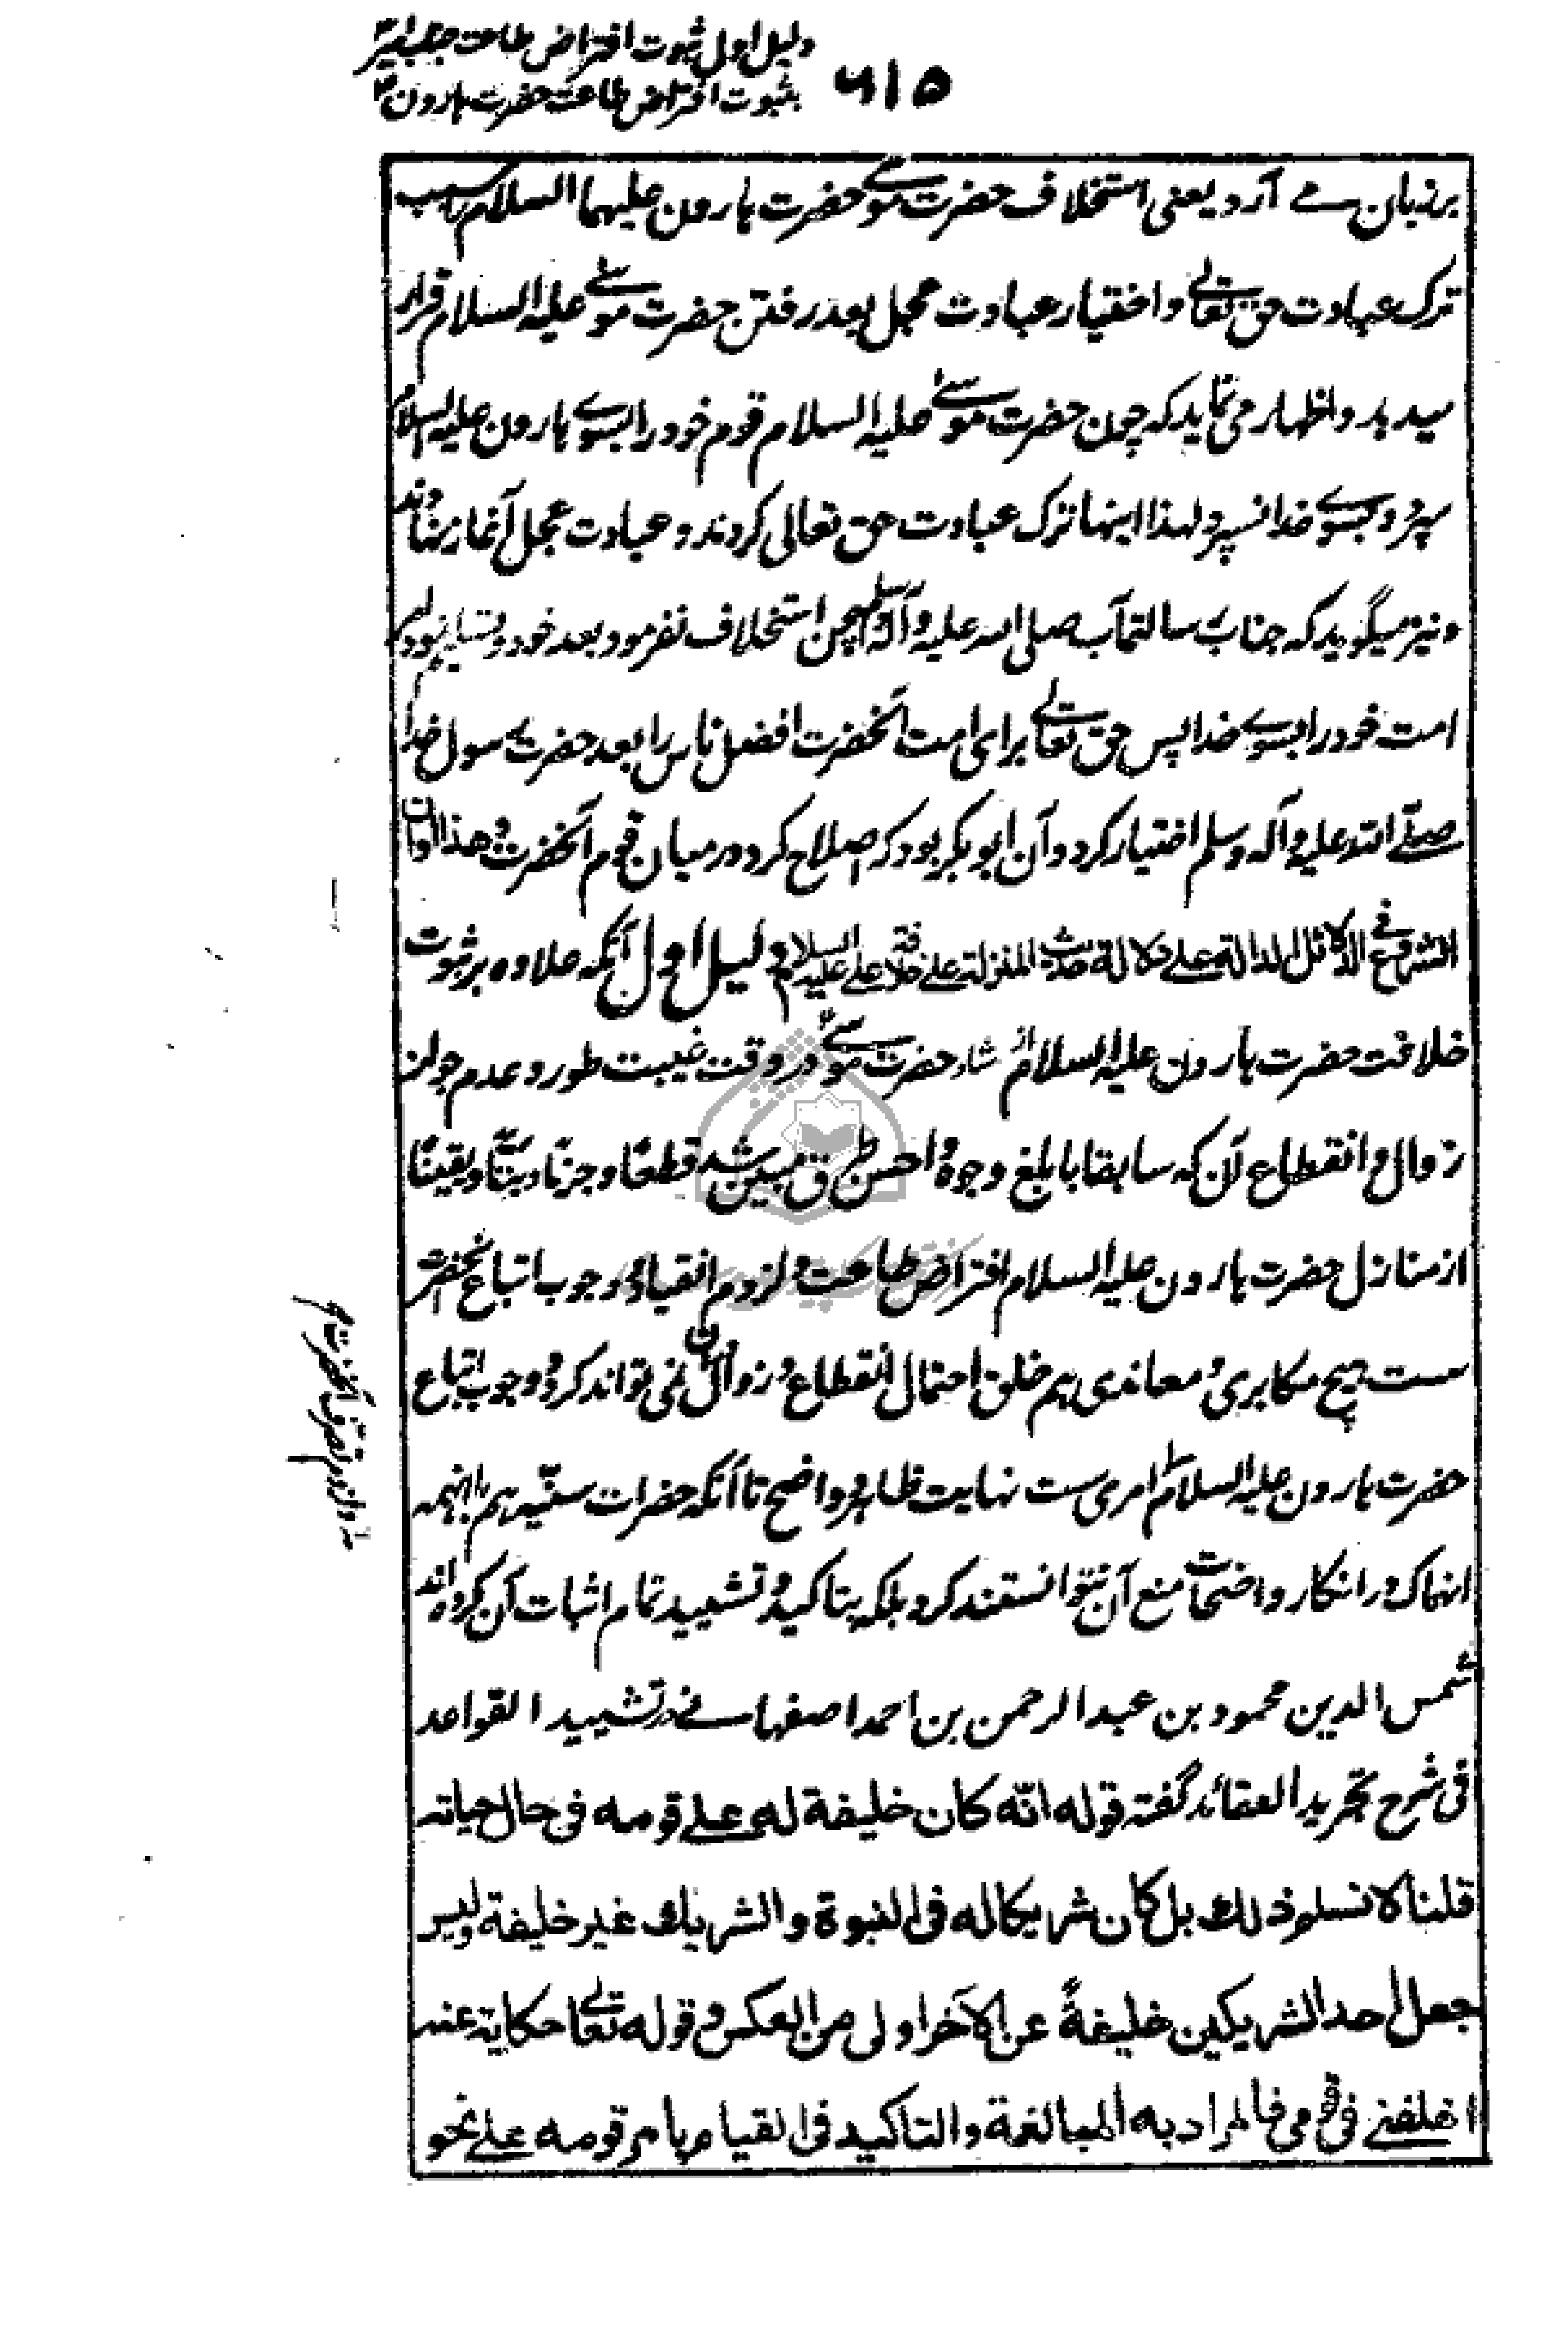 دلیل اول ثبوت افتراض طاعت جناب امیرؑ
بثبوت افتراض طاعت حضرت ہارونؑ
۶۱۵
برزبان مے آرد یعنی استخلاف حضرت موسے حضرت ہارون علیہما السلام را سبب
ترک عبادت حق تعالے واختیار عبادت عجل بعد رفتن حضرت موسے علیہ السلام قرار
میدہد واظہار می نماید کہ چون حضرت موسے علیہ السلام قوم خود را بسوے ہارون علیہ السلام
سپرد وبسوے خدا نسپرد لہذا اینہا ترک عبادت حق تعالی کردند وعبادت عجل آغاز نہادند
ونیز میگوید کہ جناب رسالتمآب صلی اللہ علیہ وآلہ وسلم ہمچنین استخلاف نفرمود بعد خود وتسلیم نمود امر
امت خود را بسوے خدا پس حق تعالے برای امت آنحضرت افضل ناس را بعد حضرت رسول خدا
صلّے اللہ علیہ وآلہ وسلم اختیار کرد وآن ابوبکر بود کہ اصلاح کرد درمیان قوم آنحضرت وهذا اوان
الشروع فی الدلائل الدالة علے دلالة حدیث المنزلة علے خلافة علے علیه السلام دلیل اول آنکہ علاوہ بر ثبوت
خلافت حضرت ہارون علیہ السلام از حضرت موسےؑ در وقت غیبت طور وعدم جواز
زوال وانقطاع آن کہ سابقا بابلغ وجوہ واحسن طرق مبین شد قطعًا وجزمًا وبتًّا ویقینًا
از منازل حضرت ہارون علیہ السلام افتراض طاعت ولزوم انقیاد ووجوب اتباع آنحضرت
ست ہیچ مکابری ومعاندی ہم خلق احتمال انقطاع وزوال آن نمی تواند کرد ووجوب اتباع
حضرت ہارون علیہ السلام امری ست نہایت ظاہر وواضح تا آنکہ حضرات سنّیہ ہم باینہمہ
انہماک در انکار واضحات منع آن نتوانستند کرد بلکہ بتاکید وتشیید تمام اثبات آن کردہ اند
شمس الدین محمود بن عبد الرحمن بن احمد اصفہانے در تشیید القواعد
فی شرح تجرید العقائد گفتہ قوله انّه کان خلیفة له علے قومه فی حال حیاته
قلنا لا نسلم ذلك بل کان شریکا له فی النبوة والشریك غیر خلیفة ولیس
جعل احد الشریکین خلیفةً عن الآخر اولی من العکس وقوله تعالے حکایة عنه
اخلفنے فی قومی فالمراد به المبالغة والتاکید فی القیام بامر قومه علے نحو